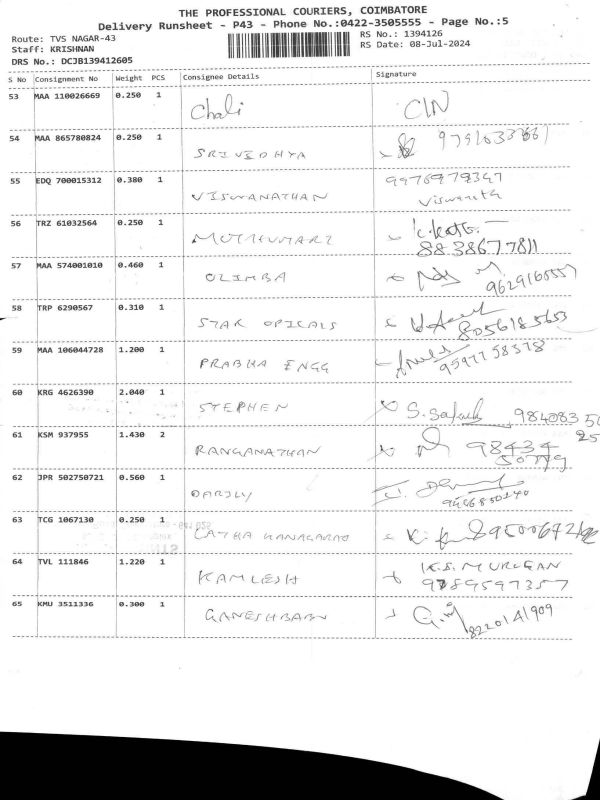 THE PROFESSIONAL COURIERS, COIMBATORE
Delivery Runsheet - P43 - Phone No.:0422-3505555 - Page No.:5
Route: TVS NAGAR-43 RS No.: 1394126
Staff: KRISHNAN RS Date: 08-Jul-2024
DRS No.: DCJB139412605
S No Consignment No Weight PCS Consignee Details Signature
53 MAA 110026669 0.250 1 Chali CIN
54 MAA 865780824 0.250 1 SRIVIDHYA
55 EDQ 700015312 0.380 1 VISWANATHAN 9976979347
Viswanath
56 TRZ 61032564 0.250 1 MUTHUMARI
8838677811
57 MAA 574001010 0.460 1 OLIMBA
9629160557
58 TRP 6290567 0.310 1 STAR OPICALS
8056185653
59 MAA 106044728 1.200 1 PRABHA ENGG
9597758378
60 KRG 4626390 2.040 1 STEPHEN
61 KSM 937955 1.430 2 RANGANATHAN 98434
50779
62 JPR 502750721 0.560 1
9486850140
63 TCG 1067130 0.250 1 LATHA KANAGARAJ
64 TVL 111846 1.220 1 KAMLESH K.S. MURUGAN
9789597357
65 KMU 3511336 0.300 1 GANESHBABU
8220141909